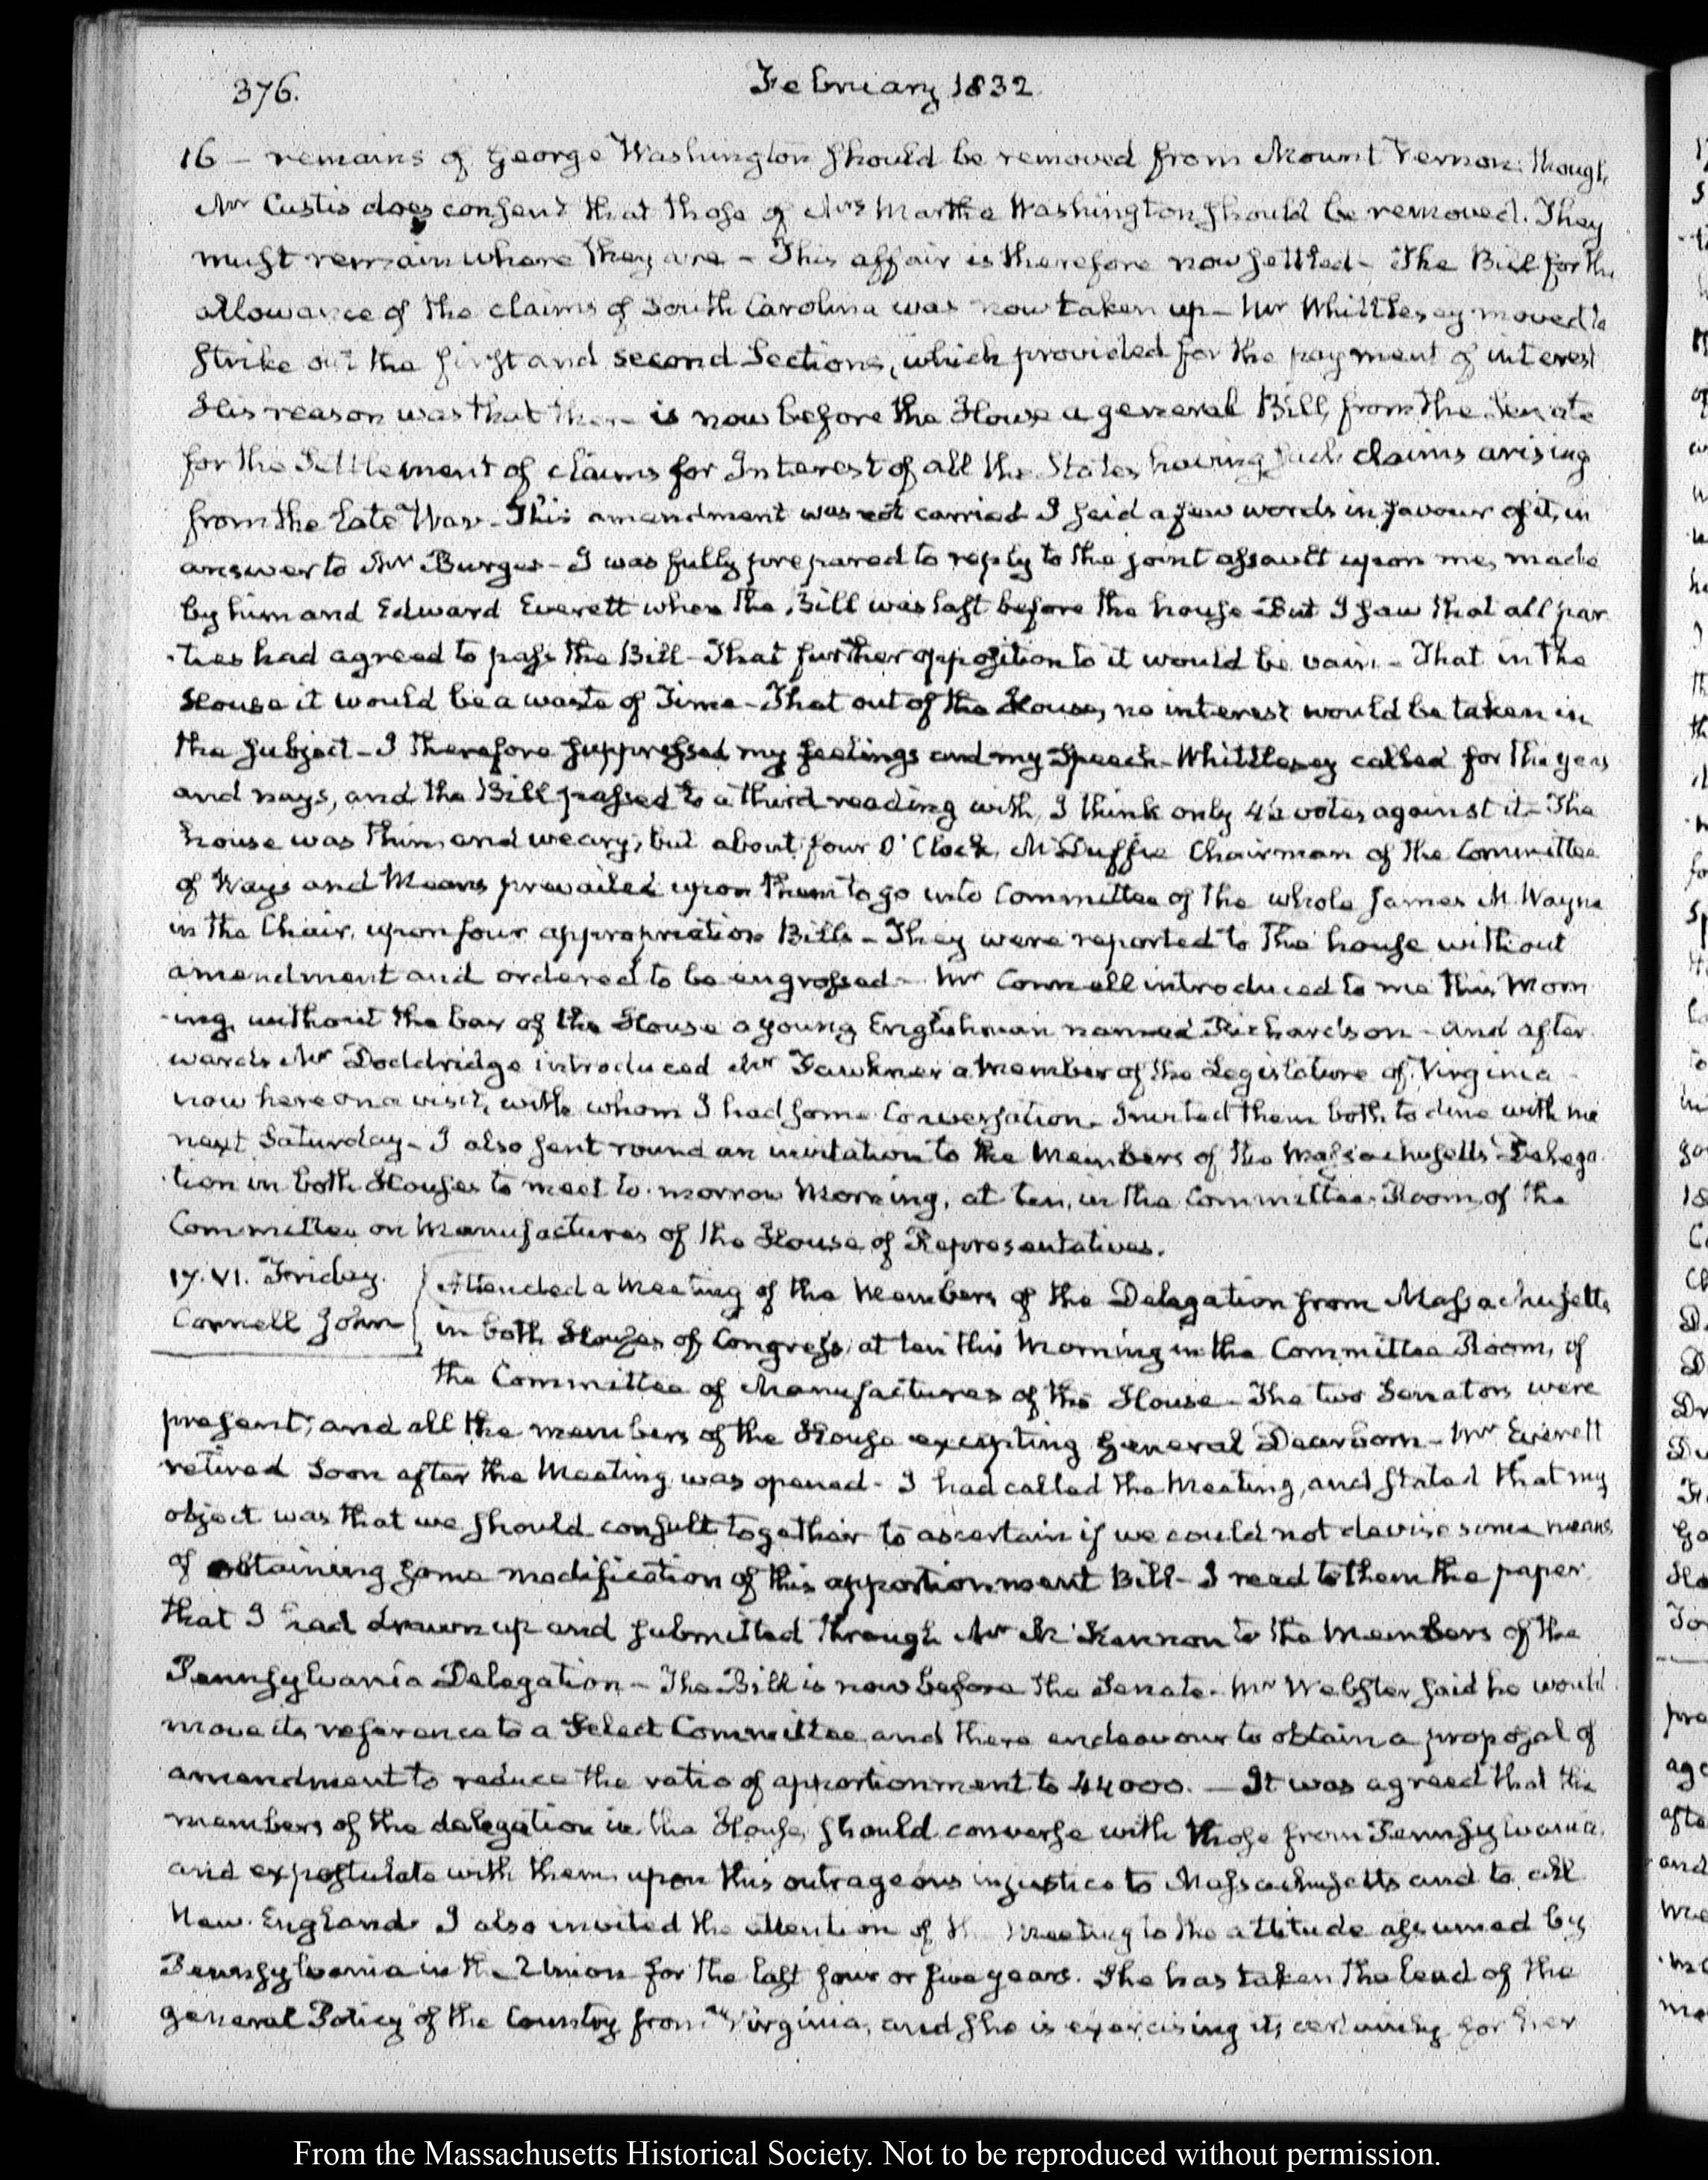 376.
February 1832
16 — remains of George Washington should be removed from Mount Vernon: though
Mr Custis does consent that those of Mrs Martha Washington should be removed. They
must remain where they are – This affair is therefore now settled – The Bill for the
allowance of the claims of South Carolina was now taken up – Mr Whittlesey moved to
strike out the first and second Sections, which provided for the payment of interest
His reason was that there is now before the House a general Bill, from the Senate
for the Settlement of claims for Interest of all the States having such claims arising
from the Late War – This amendment was not carried I said a few words in favour of it, in
answer to Mr Burges – I was fully prepared to reply to the joint assault upon me, made
by him and Edward Everett when the Bill was last before the house – But I saw that all par
-ties had agreed to pass the Bill – That further opposition to it would be vain – That in the
House it would be a waste of Time – That out of the House, no interest would be taken in
the subject – I therefore suppressed my feelings and my Speech – Whittlesey called for the yeas
and nays, and the Bill passed to a third reading with, I think only votes against it – The
house was thin and weary; but about four O'Clock, McDuffie Chairman of the Committee
of Ways and Means prevailed upon them to go into Committee of the whole James M. Wayne
in the Chair, upon four appropriation Bills – They were reported to the house without
amendment and ordered to be engrossed – Mr Connell introduced to me this Morn
-ing, without the bar of the House a young Englishman named Richardson – and after
wards Mr Doddridge introduced Mr Fawkner a member of the Legislature of Virginia
now here on a visit, with whom I had some Conversation. Invited them both to dine with me
next Saturday – I also sent round an invitation to the Members of the Massachusetts Delega
-tion in both Houses to meet to-morrow Morning, at ten, in the Committee Room, of the
Committee on Manufactures of the House of Representatives.
17. VI. Friday.
Connell John
Attended a Meeting of the Members of the Delegation from Massachusetts
in both Houses of Congress, at ten this Morning in the Committee Room, of
the Committee of Manufactures of the House – The two Senators were
present, and all the members of the House excepting General Dearborn – Mr Everett
retired soon after the Meeting was opened – I had called the Meeting, and stated that my
object was that we should consult together to ascertain if we could not devise some means
of obtaining some modification of this apportionment Bill – I read to them the paper
that I had drawn up and submitted through Mr McKennon to the Members of the
Pennsylvania Delegation – The Bill is now before the Senate – Mr Webster said he would
move its reference to a Select Committee, and there endeavour to obtain a proposal of
amendment to reduce the ratio of apportionment to 44000. — It was agreed that the
members of the delegation in the House, should converse with those from Pennsylvania,
and expostulate with them, upon this outrageous injustice to Massachusetts and to all
New-England. I also invited the attention of the Meeting to the attitude assumed by
Pennsylvania in the Union for the last four or five years. She has taken the lead of the
general Policy of the Country from Virginia, and she is exercising its for her
From the Massachusetts Historical Society. Not to be reproduced without permission.